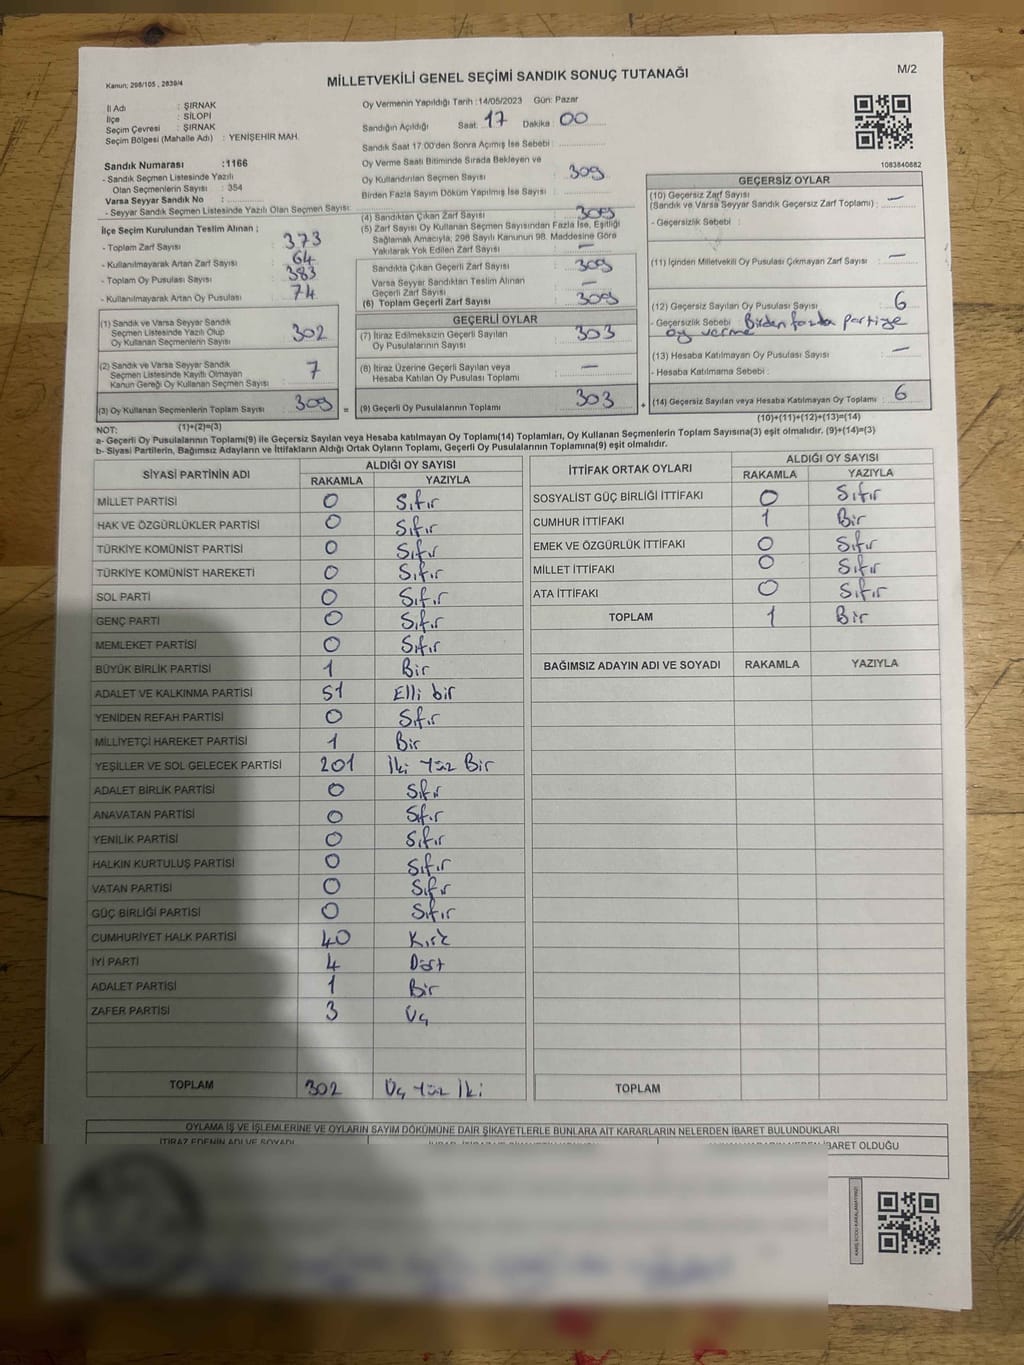 Kanun; 298/105 , 2839/4
MİLLETVEKİLİ GENEL SEÇİMİ SANDIK SONUÇ TUTANAĞI
M/2
İl Adı : ŞIRNAK
İlçe : SİLOPİ
Seçim Çevresi : ŞIRNAK
Seçim Bölgesi (Mahalle Adı) : YENİŞEHİR MAH.
Sandık Numarası :1166
- Sandık Seçmen Listesinde Yazılı
Olan Seçmenlerin Sayısı : 354
Varsa Seyyar Sandık No :
- Seyyar Sandık Seçmen Listesinde Yazılı Olan Seçmen Sayısı:
Oy Vermenin Yapıldığı Tarih :14/05/2023 Gün: Pazar
Sandığın Açıldığı Saat: 17 Dakika : 00
Sandık Saat 17:00'den Sonra Açımış İse Sebebi :
Oy Verme Saati Bitiminde Sırada Bekleyen ve
Oy Kullandırılan Seçmen Sayısı : 309
Birden Fazla Sayım Döküm Yapılmış İse Sayısı :
1083840882
İlçe Seçim Kurulundan Teslim Alınan ;
- Toplam Zarf Sayısı : 373
- Kullanılmayarak Artan Zarf Sayısı : 64
- Toplam Oy Pusulası Sayısı : 383
- Kullanılmayarak Artan Oy Pusulası : 74
(1) Sandık ve Varsa Seyyar Sandık
Seçmen Listesinde Yazılı Olup
Oy Kullanan Seçmenlerin Sayısı : 302
(2) Sandık ve Varsa Seyyar Sandık
Seçmen Listesinde Kayıtlı Olmayan
Kanun Gereği Oy Kullanan Seçmen Sayısı : 7
(3) Oy Kullanan Seçmenlerin Toplam Sayısı : 309 =
(1)+(2)=(3)
(4) Sandıktan Çıkan Zarf Sayısı : 309
(5) Zarf Sayısı Oy Kullanan Seçmen Sayısından Fazla İse, Eşitliği
Sağlamak Amacıyla, 298 Sayılı Kanunun 98. Maddesine Göre
Yakılarak Yok Edilen Zarf Sayısı : —
Sandıkta Çıkan Geçerli Zarf Sayısı : 309
Varsa Seyyar Sandıktan Teslim Alınan
Geçerli Zarf Sayısı : —
(6) Toplam Geçerli Zarf Sayısı : 309
GEÇERLİ OYLAR
(7) İtiraz Edilmeksizin Geçerli Sayılan
Oy Pusulalarının Sayısı : 303
(8) İtiraz Üzerine Geçerli Sayılan veya
Hesaba Katılan Oy Pusulası Toplamı : —
(9) Geçerli Oy Pusulalarının Toplamı : 303 +
GEÇERSİZ OYLAR
(10) Geçersiz Zarf Sayısı
(Sandık ve Varsa Seyyar Sandık Geçersiz Zarf Toplamı) : —
- Geçersizlik Sebebi :
(11) İçinden Milletvekili Oy Pusulası Çıkmayan Zarf Sayısı : —
(12) Geçersiz Sayılan Oy Pusulası Sayısı : 6
- Geçersizlik Sebebi : Birden fazla partiye
oy verme
(13) Hesaba Katılmayan Oy Pusulası Sayısı : —
- Hesaba Katılmama Sebebi :
(14) Geçersiz Sayılan veya Hesaba Katılmayan Oy Toplamı : 6
(10)+(11)+(12)+(13)=(14)
NOT:
a- Geçerli Oy Pusulalarının Toplamı(9) ile Geçersiz Sayılan veya Hesaba katılmayan Oy Toplamı(14) Toplamları, Oy Kullanan Seçmenlerin Toplam Sayısına(3) eşit olmalıdır. (9)+(14)=(3)
b- Siyasi Partilerin, Bağımsız Adayların ve İttifakların Aldığı Ortak Oyların Toplamı, Geçerli Oy Pusulalarının Toplamına(9) eşit olmalıdır.
SİYASİ PARTİNİN ADI ALDIĞI OY SAYISI
RAKAMLA YAZIYLA
MİLLET PARTİSİ 0 Sıfır
HAK VE ÖZGÜRLÜKLER PARTİSİ 0 Sıfır
TÜRKİYE KOMÜNİST PARTİSİ 0 Sıfır
TÜRKİYE KOMÜNİST HAREKETİ 0 Sıfır
SOL PARTİ 0 Sıfır
GENÇ PARTİ 0 Sıfır
MEMLEKET PARTİSİ 0 Sıfır
BÜYÜK BİRLİK PARTİSİ 1 Bir
ADALET VE KALKINMA PARTİSİ 51 Elli bir
YENİDEN REFAH PARTİSİ 0 Sıfır
MİLLİYETÇİ HAREKET PARTİSİ 1 Bir
YEŞİLLER VE SOL GELECEK PARTİSİ 201 İki Yüz Bir
ADALET BİRLİK PARTİSİ 0 Sıfır
ANAVATAN PARTİSİ 0 Sıfır
YENİLİK PARTİSİ 0 Sıfır
HALKIN KURTULUŞ PARTİSİ 0 Sıfır
VATAN PARTİSİ 0 Sıfır
GÜÇ BİRLİĞİ PARTİSİ 0 Sıfır
CUMHURİYET HALK PARTİSİ 40 Kırk
İYİ PARTİ 4 Dört
ADALET PARTİSİ 1 Bir
ZAFER PARTİSİ 3 Üç
TOPLAM 302 Üç Yüz İki
İTTİFAK ORTAK OYLARI ALDIĞI OY SAYISI
RAKAMLA YAZIYLA
SOSYALİST GÜÇ BİRLİĞİ İTTİFAKI 0 Sıfır
CUMHUR İTTİFAKI 1 Bir
EMEK VE ÖZGÜRLÜK İTTİFAKI 0 Sıfır
MİLLET İTTİFAKI 0 Sıfır
ATA İTTİFAKI 0 Sıfır
TOPLAM 1 Bir
BAĞIMSIZ ADAYIN ADI VE SOYADI RAKAMLA YAZIYLA
TOPLAM
OYLAMA İŞ VE İŞLEMLERİNE VE OYLARIN SAYIM DÖKÜMÜNE DAİR ŞİKAYETLERLE BUNLARA AİT KARARLARIN NELERDEN İBARET BULUNDUKLARI
İTİRAZ EDENİN ADI VE SOYADI
İBARET OLDUĞU